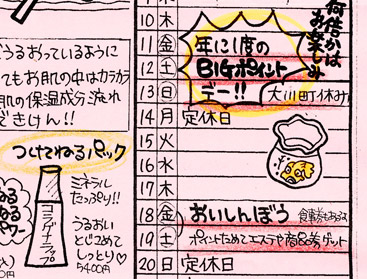 うるおっているように
てもお肌の中はカラカラ
肌の保湿成分流れ
できけん!!
つけてねるパック
コラーゲエッグ
ミネラル
たっぷり!!
うるおい
とじこめて
しっとり♡
5400円
10 木
11 金
12 土
13 日
14 月 定休日
15 火
16 水
17 木
18 金
19 土
20 日 定休日
何倍かは
お楽しみ
年に1度の
BIGポイント
デー!!
大川町休み
おいしんぼう
食事券あるよ
ポイントためてエステや商品券ゲット